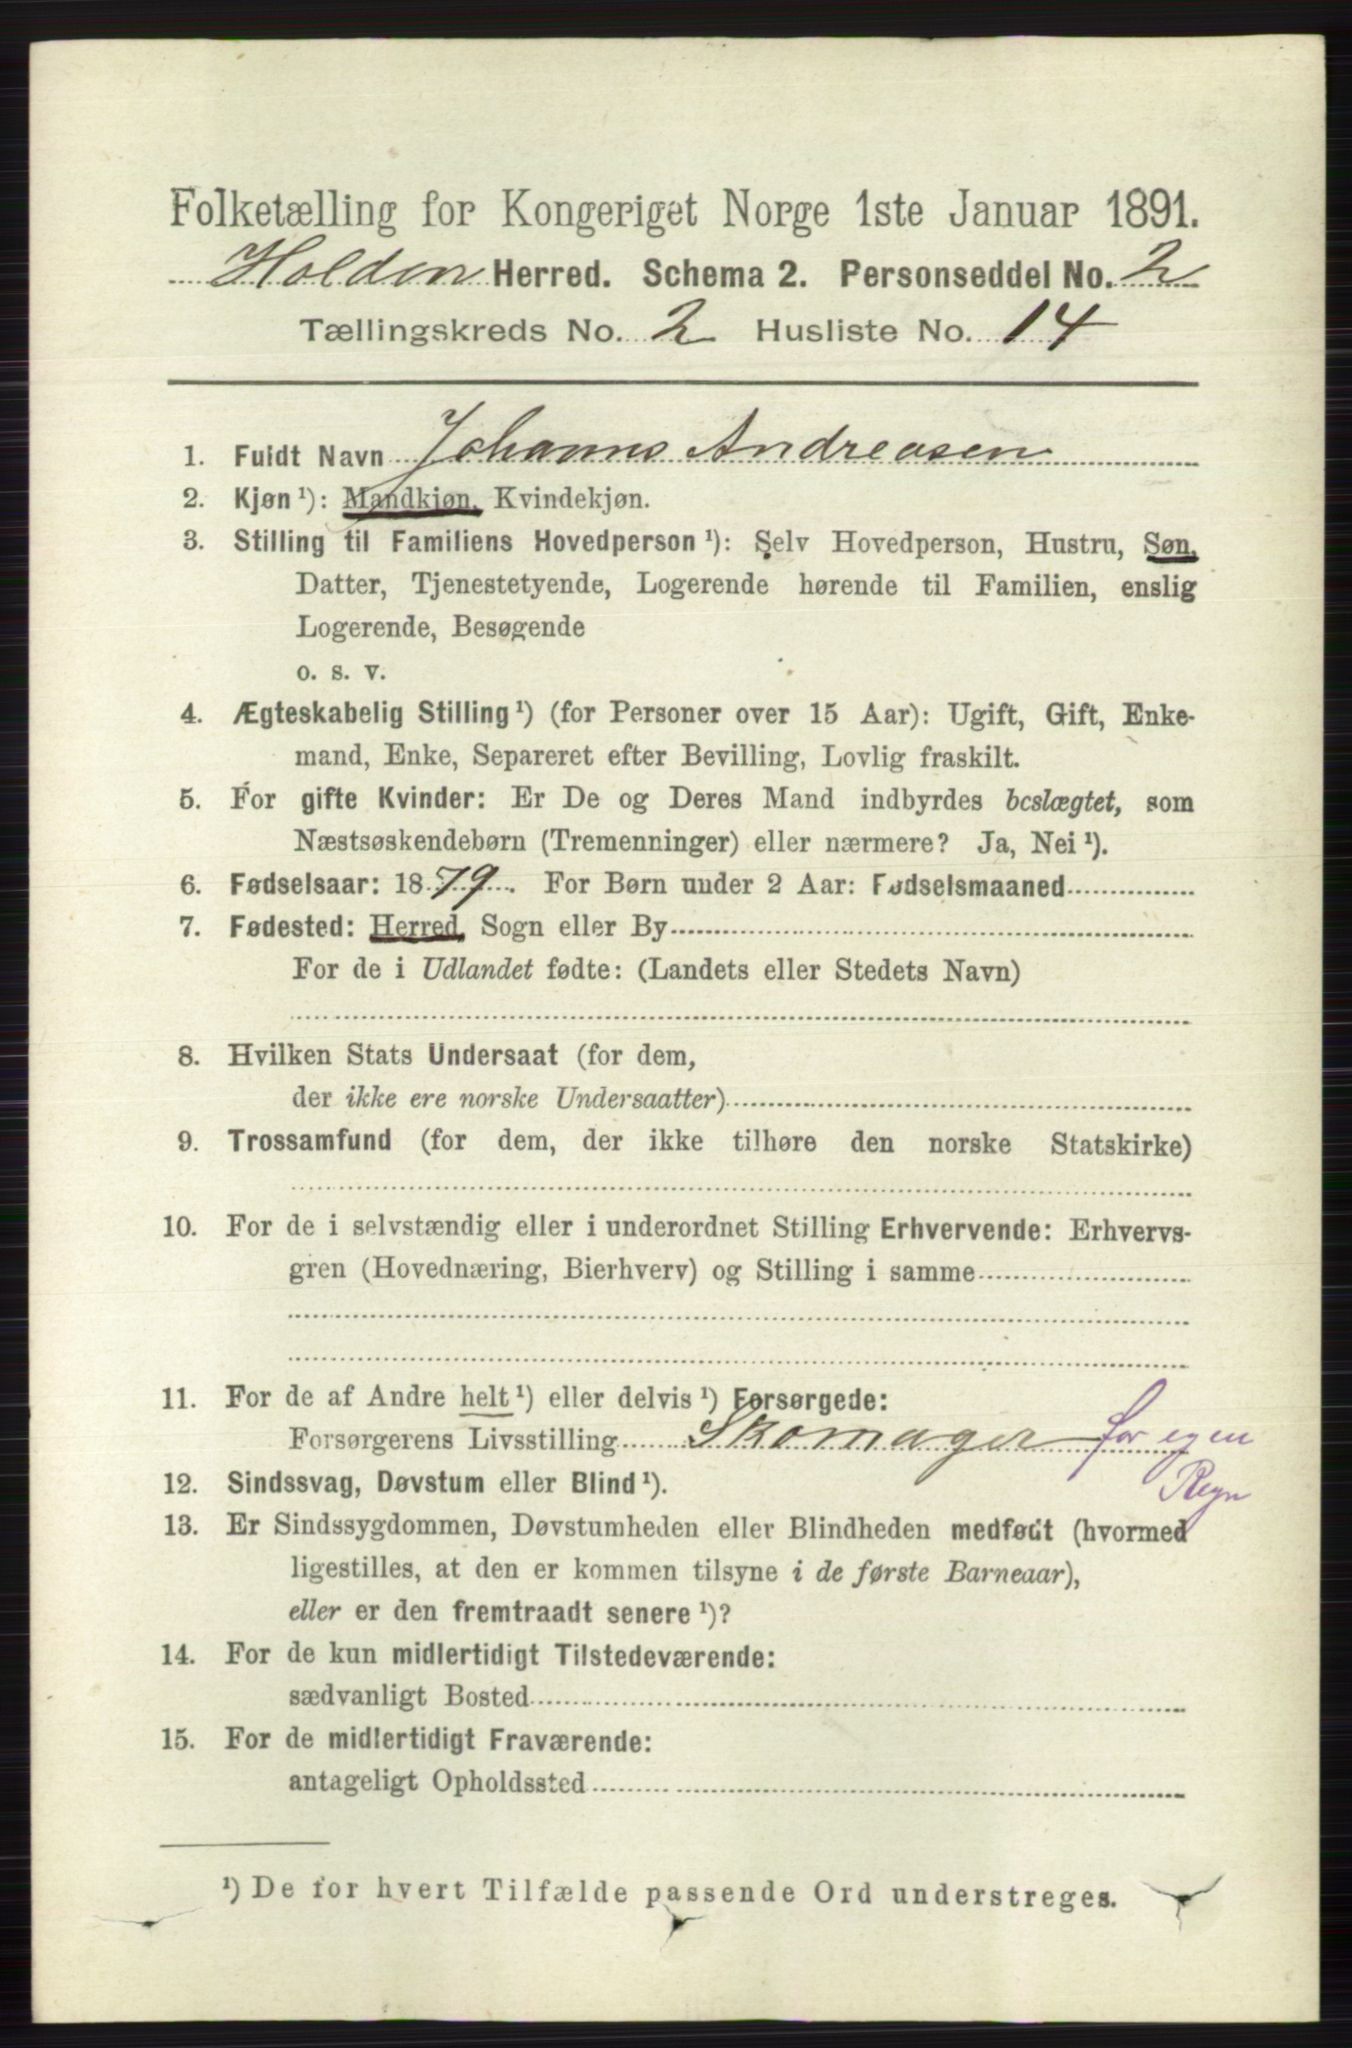 Folketælling for Kongeriget Norge 1ste Januar 1891.
Holden Herred. Schema 2. Personseddel No. 2
Tællingskreds No. 2 Husliste No. 14
1. Fuldt Navn Johannes Andreasen
2. Kjøn ¹): Mandkjøn, Kvindekjøn.
3. Stilling til Familiens Hovedperson ¹): Selv Hovedperson, Hustru, Søn,
Datter, Tjenestetyende, Logerende hørende til Familien, enslig
Logerende, Besøgende
o. s. v.
4. Ægteskabelig Stilling ¹) (for Personer over 15 Aar): Ugift, Gift, Enke-
mand, Enke, Separeret efter Bevilling, Lovlig fraskilt.
5. For gifte Kvinder: Er De og Deres Mand indbyrdes beslægtet, som
Næstsøskendebørn (Tremenninger) eller nærmere? Ja, Nei ¹).
6. Fødselsaar: 1879. For Børn under 2 Aar: Fødselsmaaned
7. Fødested: Herred, Sogn eller By
For de i Udlandet fødte: (Landets eller Stedets Navn)
8. Hvilken Stats Undersaat (for dem,
der ikke ere norske Undersaatter)
9. Trossamfund (for dem, der ikke tilhøre den norske Statskirke)
10. For de i selvstændig eller i underordnet Stilling Erhvervende: Erhvervs-
gren (Hovednæring, Bierhverv) og Stilling i samme
11. For de af Andre helt ¹) eller delvis ¹) Forsørgede:
Forsørgerens Livsstilling Skomager for egen
Regn
12. Sindssvag, Døvstum eller Blind ¹).
13. Er Sindssygdommen, Døvstumheden eller Blindheden medfødt (hvormed
ligestilles, at den er kommen tilsyne i de første Barneaar),
eller er den fremtraadt senere ¹)?
14. For de kun midlertidigt Tilstedeværende:
sædvanligt Bosted
15. For de midlertidigt Fraværende:
antageligt Opholdssted
¹) De for hvert Tilfælde passende Ord understreges.